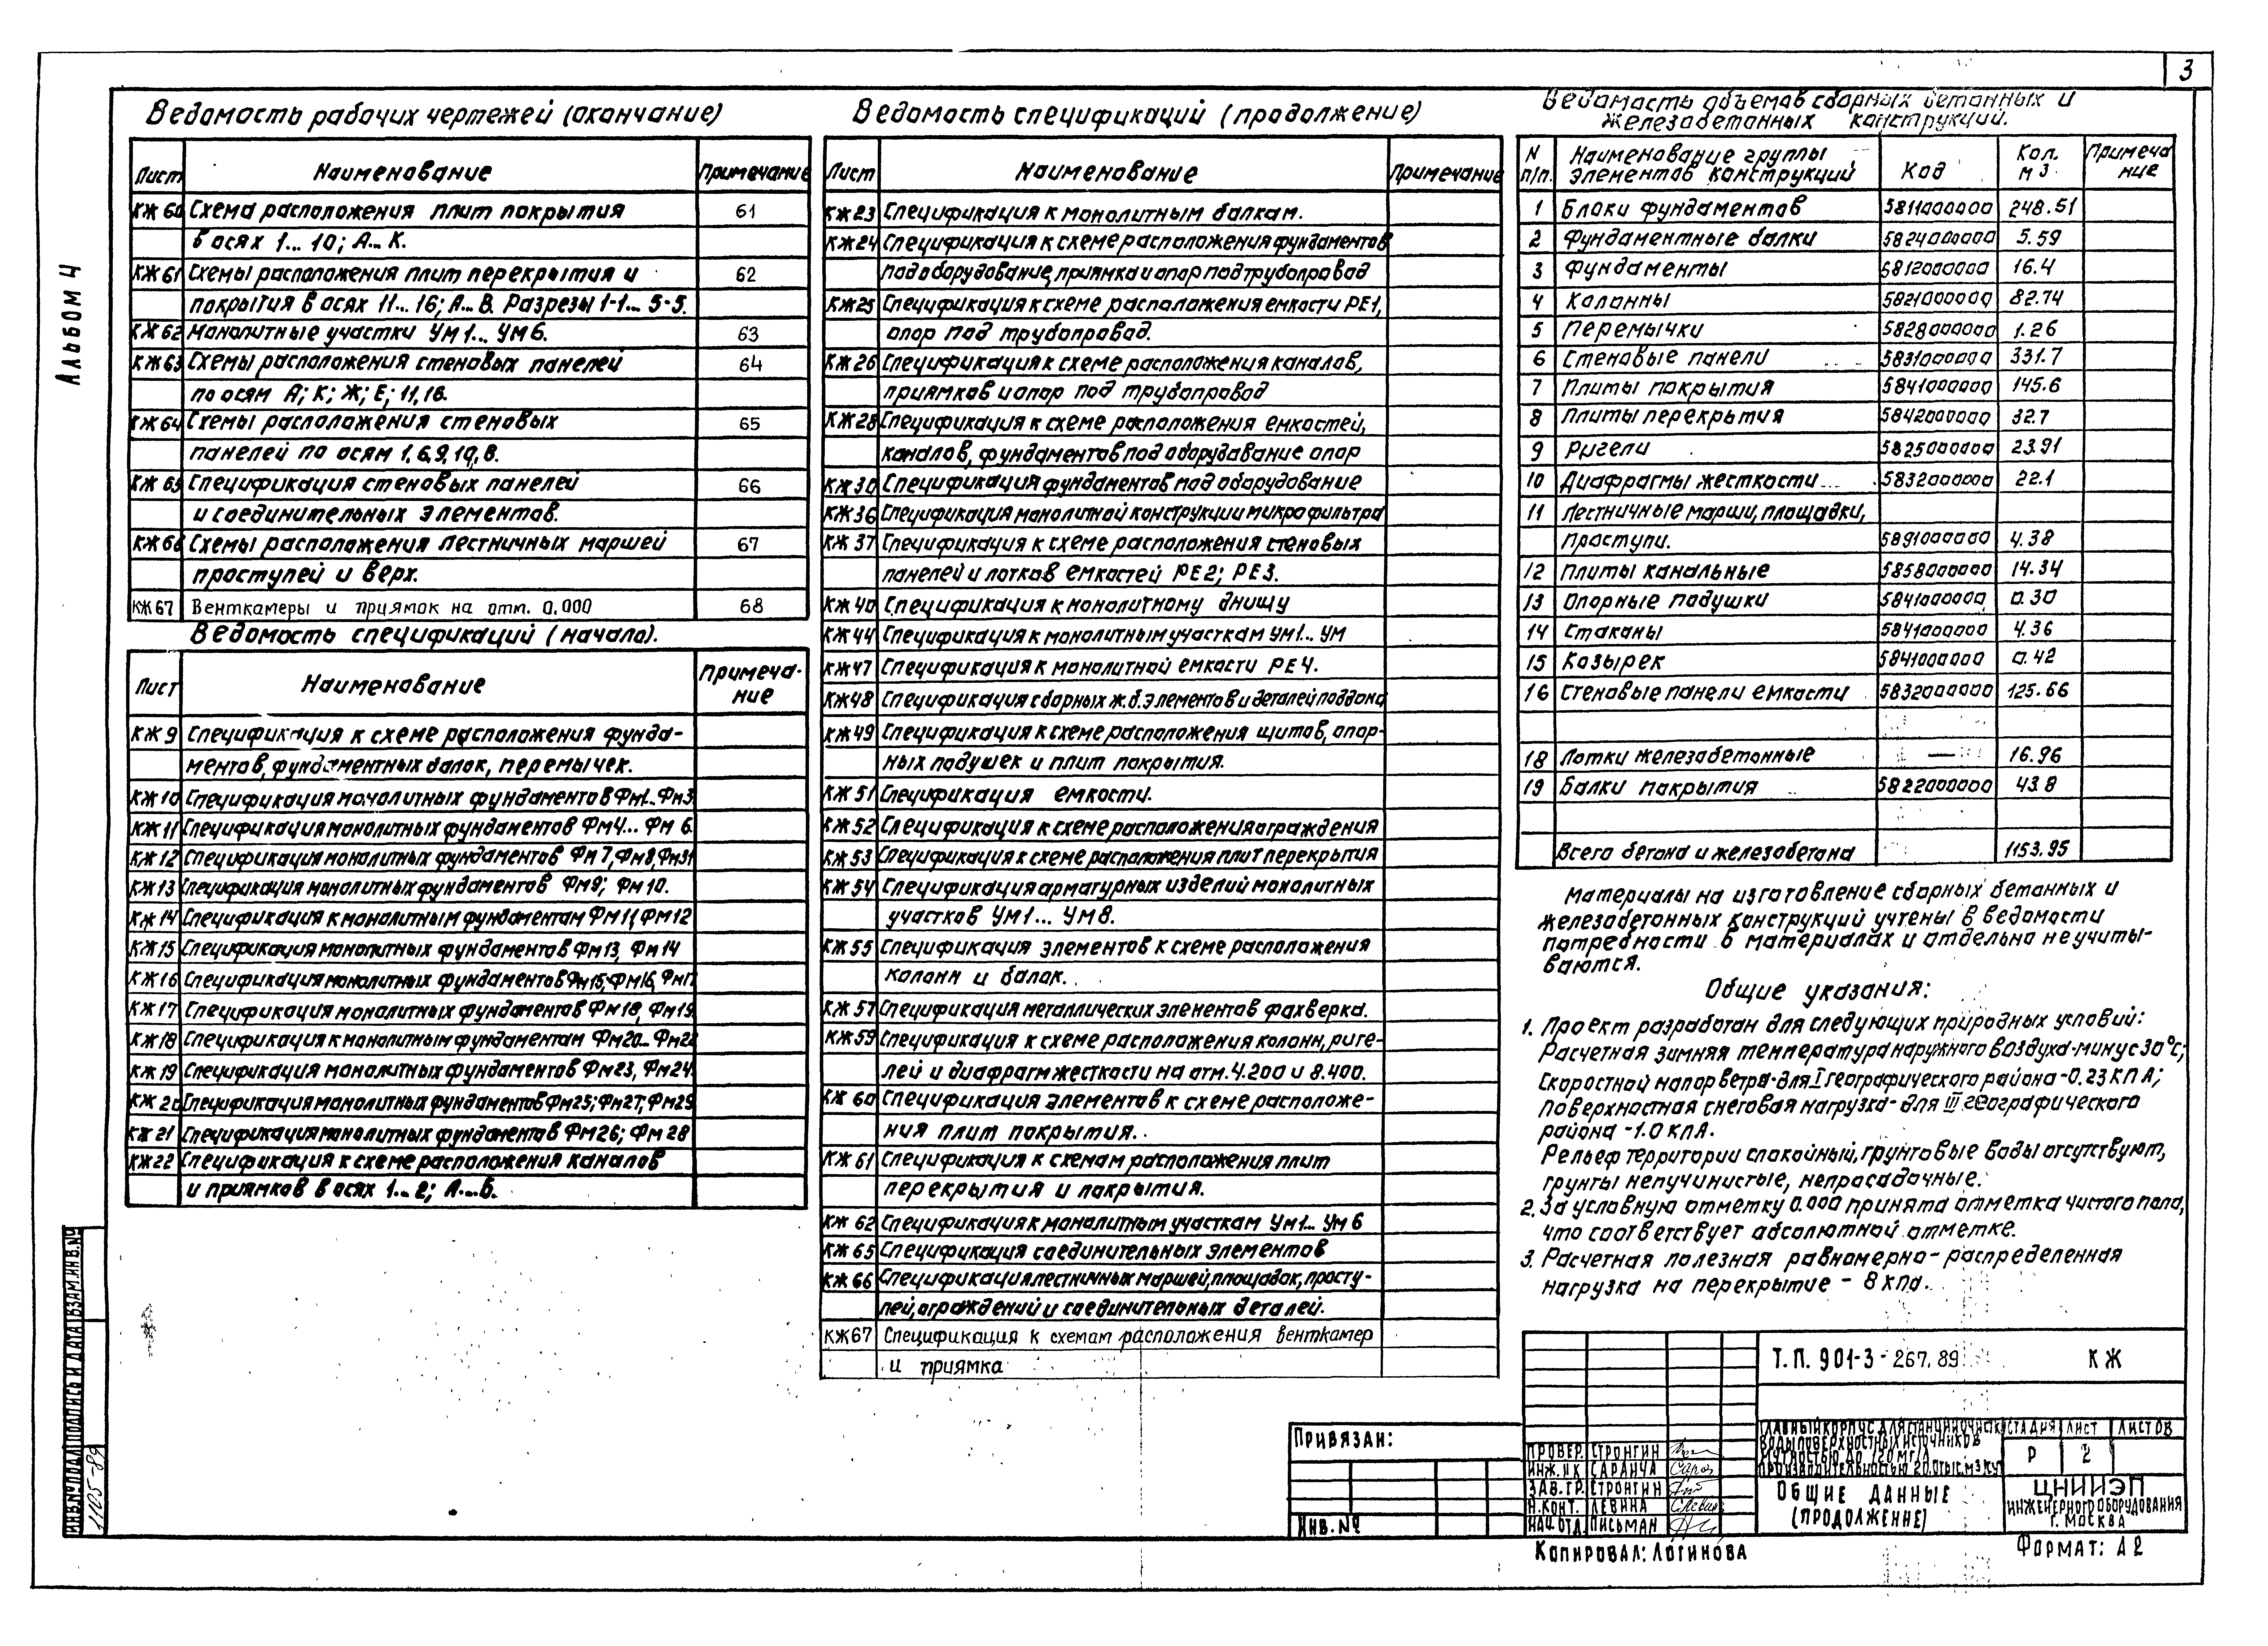 3
Альбом 4
Ведомость рабочих чертежей (окончание)
Лист Наименование Примечание
КЖ 60 Схема расположения плит покрытия 61
в осях 1... 10; А... К.
КЖ 61 Схемы расположения плит перекрытия и 62
покрытия в осях 11... 16; А... В. Разрезы 1-1... 5-5.
КЖ 62 Монолитные участки УМ1... УМ6. 63
КЖ 63 Схемы расположения стеновых панелей 64
по осям А; К; Ж; Е; 11,16.
КЖ 64 Схемы расположения стеновых 65
панелей по осям 1,6,9,10,В.
КЖ 65 Спецификация стеновых панелей 66
и соединительных элементов.
КЖ 66 Схемы расположения лестничных маршей 67
проступей и верх.
КЖ 67 Венткамеры и приямок на отм. 0,000 68
Ведомость спецификаций (начало).
Лист Наименование Примеча-
ние
КЖ 9 Спецификация к схеме расположения фунда-
ментов, фундаментных балок, перемычек.
КЖ 10 Спецификация монолитных фундаментов ФМ1... ФМ3
КЖ 11 Спецификация монолитных фундаментов ФМ4... ФМ 6.
КЖ 12 Спецификация монолитных фундаментов ФМ 7, ФМ8, ФМ31
КЖ 13 Спецификация монолитных фундаментов ФМ9; ФМ 10.
КЖ 14 Спецификация к монолитным фундаментам ФМ11, ФМ12
КЖ 15 Спецификация монолитных фундаментов ФМ13, ФМ 14
КЖ 16 Спецификация монолитных фундаментов ФМ15; ФМ16, ФМ17
КЖ 17 Спецификация монолитных фундаментов ФМ 18, ФМ19.
КЖ 18 Спецификация к монолитным фундаментам ФМ20... ФМ22
КЖ 19 Спецификация монолитных фундаментов ФМ23, ФМ24.
КЖ 20 Спецификация монолитных фундаментов ФМ25; ФМ27, ФМ29
КЖ 21 Спецификация монолитных фундаментов ФМ26; ФМ 28
КЖ 22 Спецификация к схеме расположения каналов
и приямков в осях 1... 2; А...Б.
Ведомость спецификаций (продолжение)
Лист Наименование Примечание
КЖ 23 Спецификация к монолитным балкам.
КЖ 24 Спецификация к схеме расположения фундаментов
под оборудование, приямка и опор под трубопровод
КЖ 25 Спецификация к схеме расположения емкости РЕ1,
опор под трубопровод.
КЖ 26 Спецификация к схеме расположения каналов,
приямков и опор под трубопровод
КЖ 28 Спецификация к схеме расположения емкостей,
каналов, фундаментов под оборудование опор
КЖ 30 Спецификация фундаментов под оборудование
КЖ 36 Спецификация монолитной конструкции микрофильтра
КЖ 37 Спецификация к схеме расположения стеновых
панелей и лотков емкостей РЕ2; РЕ3.
КЖ 40 Спецификация к монолитному днищу
КЖ 44 Спецификация к монолитным участкам УМ1... УМ
КЖ 47 Спецификация к монолитной емкости РЕ4.
КЖ 48 Спецификация сборных ж.б. элементов и деталей поддона
КЖ 49 Спецификация к схеме расположения щитов, опор-
ных подушек и плит покрытия.
КЖ 51 Спецификация емкости.
КЖ 52 Спецификация к схеме расположения ограждения
КЖ 53 Спецификация к схеме расположения плит перекрытия
КЖ 54 Спецификация арматурных изделий монолитных
участков УМ1... УМ8.
КЖ 55 Спецификация элементов к схеме расположения
колонн и балок.
КЖ 57 Спецификация металлических элементов фахверка.
КЖ 59 Спецификация к схеме расположения колонн, риге-
лей и диафрагм жесткости на отм. 4.200 и 8.400.
КЖ 60 Спецификация элементов к схеме расположе-
ния плит покрытия.
КЖ 61 Спецификация к схемам расположения плит
перекрытия и покрытия.
КЖ 62 Спецификация к монолитным участкам УМ1... УМ 6
КЖ 65 Спецификация соединительных элементов
КЖ 66 Спецификация лестничных маршей, площадок, просту-
пей, ограждений и соединительных деталей.
КЖ67 Спецификация к схемам расположения венткамер
и приямка
Ведомость объемов сборных бетонных и
железобетонных конструкций.
N п/п. Наименование группы элементов конструкций Код Кол. м3 Примеча ние
1 Блоки фундаментов 5811000000 248.51
2 Фундаментные балки 5824000000 5.59
3 Фундаменты 5812000000 16.4
4 Колонны 5821000000 82.74
5 Перемычки 5828000000 1.26
6 Стеновые панели 5831000000 331.7
7 Плиты покрытия 5841000000 145.6
8 Плиты перекрытия 5842000000 32.7
9 Ригели 5825000000 23.91
10 Диафрагмы жесткости 5832000000 22.1
11 Лестничные марши, площадки,
проступи. 5891000000 4.38
12 Плиты канальные 5858000000 14.34
13 Опорные подушки 5841000000 0.30
14 Стаканы 5841000000 4.36
15 Козырек 5841000000 0.42
16 Стеновые панели емкости 5832000000 125.66
18 Лотки железобетонные — 16.96
19 Балки покрытия 5822000000 43.8
Всего бетона и железобетона 1153.95
Материалы на изготовление сборных бетонных и
железобетонных конструкций учтены в ведомости
потребности в материалах и отдельно не учиты-
ваются.
Общие указания:
1. Проект разработан для следующих природных условий:
Расчетная зимняя температура наружного воздуха-минус 30°С;
Скоростной напор ветра-для I географического района -0.23 КПА;
Поверхностная снеговая нагрузка- для III географического
района -1.0 КПА.
Рельеф территории спокойный, грунтовые воды отсутствуют,
грунты непучинистые, непросадочные.
2. За условную отметку 0.000 принята отметка чистого пола,
что соответствует абсолютной отметке.
3. Расчетная полезная равномерно-распределенная
нагрузка на перекрытие - 8 кпа.
Т.П. 901-3-267.89 КЖ
Привязан:
Инв. №
Провер. Стронгин
Инж. IIК Саранча
Зав. гр. Стронгин
Н.конт. Левина
Нач.отд. Письман
Главный корпус для станции очистки
воды поверхностных источников
мутностью до 120 мг/л
производительностью 20.0 тыс. м3/сут
Стадия Лист Листов
Р 2
Общие данные
(продолжение)
ЦНИИЭП
инженерного оборудования
г. Москва
Копировал: Логинова
Формат: А2
Инв. № подл. Подпись и дата Взам. инв. №
1105-89